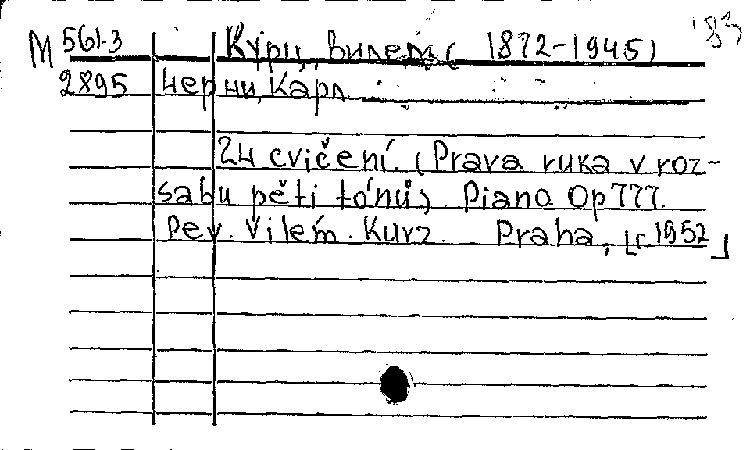 '83
M 561.3 Курц, Вилем ( 1872-1945)
2895 Черни, Карл
24 cvičení. (Prava ruka v roz-
sahu pěti tónů). Piano. Op 777.
Rev. Vilem. Kurz. Praha, [1952]